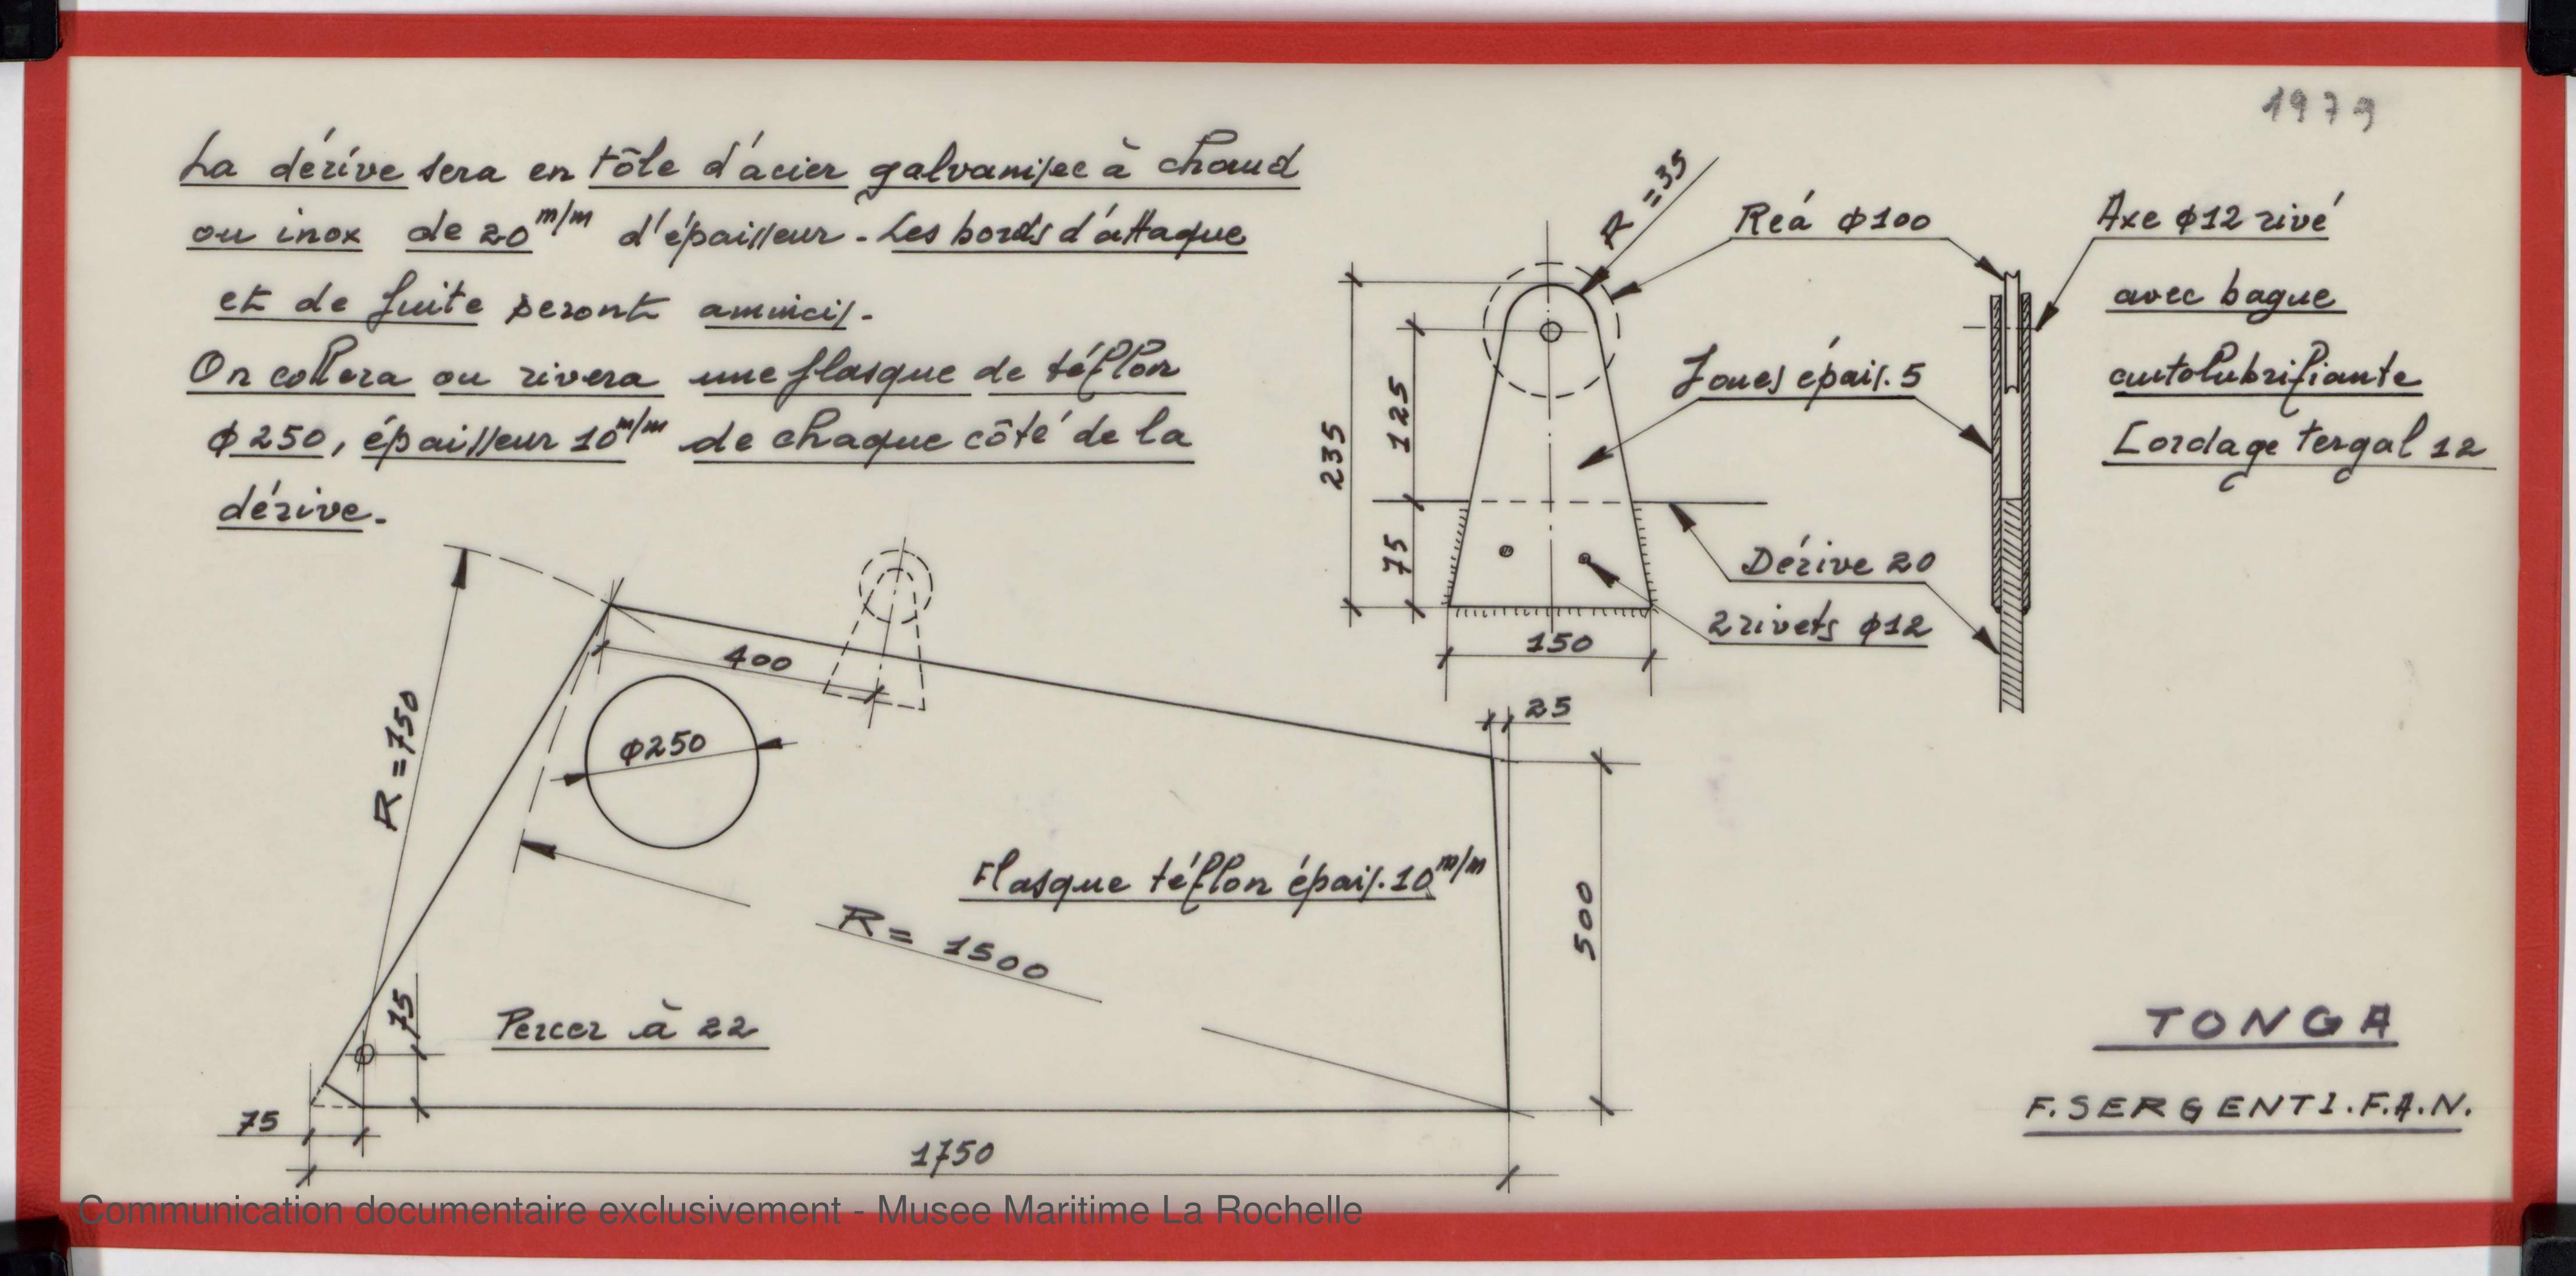 1979
La dérive sera en tôle d'acier galvanisée à chaud
ou inox de 20 m/m d'épaisseur - Les bords d'attaque
et de fuite seront amincis.
On collera ou rivera une flasque de téflon
ϕ 250, épaisseur 10 m/m de chaque côté de la
dérive.
R = 35
Réa ϕ100
Axe ϕ12 rivé
avec bague
autolubrifiante
Cordage tergal 12
Joues épais. 5
235
125
75
Dérive 20
2 rivets ϕ12
150
R = 750
400
ϕ250
25
500
Flasque téflon épais. 10 m/m
R = 1500
75
Percer à 22
75
1750
TONGA
F. SERGENT I.F.A.N.
Communication documentaire exclusivement - Musee Maritime La Rochelle